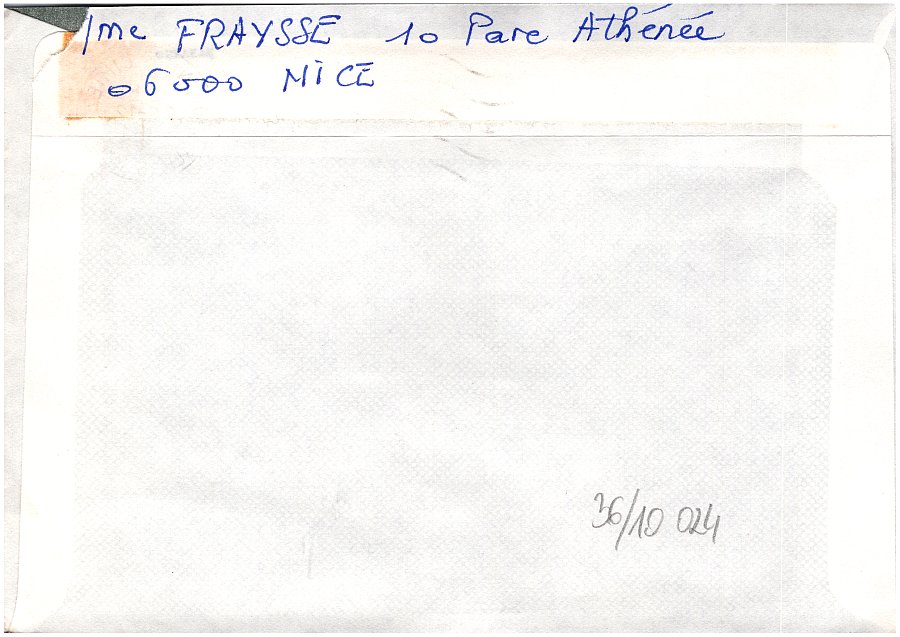 Mme FRAYSSE 10 Parc Athénée
06000 NICE
36/10 024